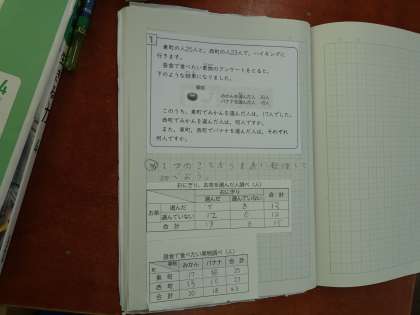 1
東町の人25人と、西町の人23人で、ハイキングに
行きます。
昼食で食べたい果物のアンケートをとると、
下のような結果になりました。
果物
みかんを選んだ人 30人
バナナを選んだ人 18人
このうち、東町でみかんを選んだ人は、17人でした。
西町でみかんを選んだ人は、何人ですか。
また、東町、西町でバナナを選んだ人は、それぞれ
何人ですか。
2つのことがらを表に整理して
おにぎり、お茶を選んだ人調べ(人)
おにぎり
選んだ 選んでいない 合計
お茶 選んだ
選んでいない 12
合計
昼食で食べたい果物調べ(人)
町 果物 みかん バナナ 合計
東町 17 25
西町 13 23
合計 30 18
4